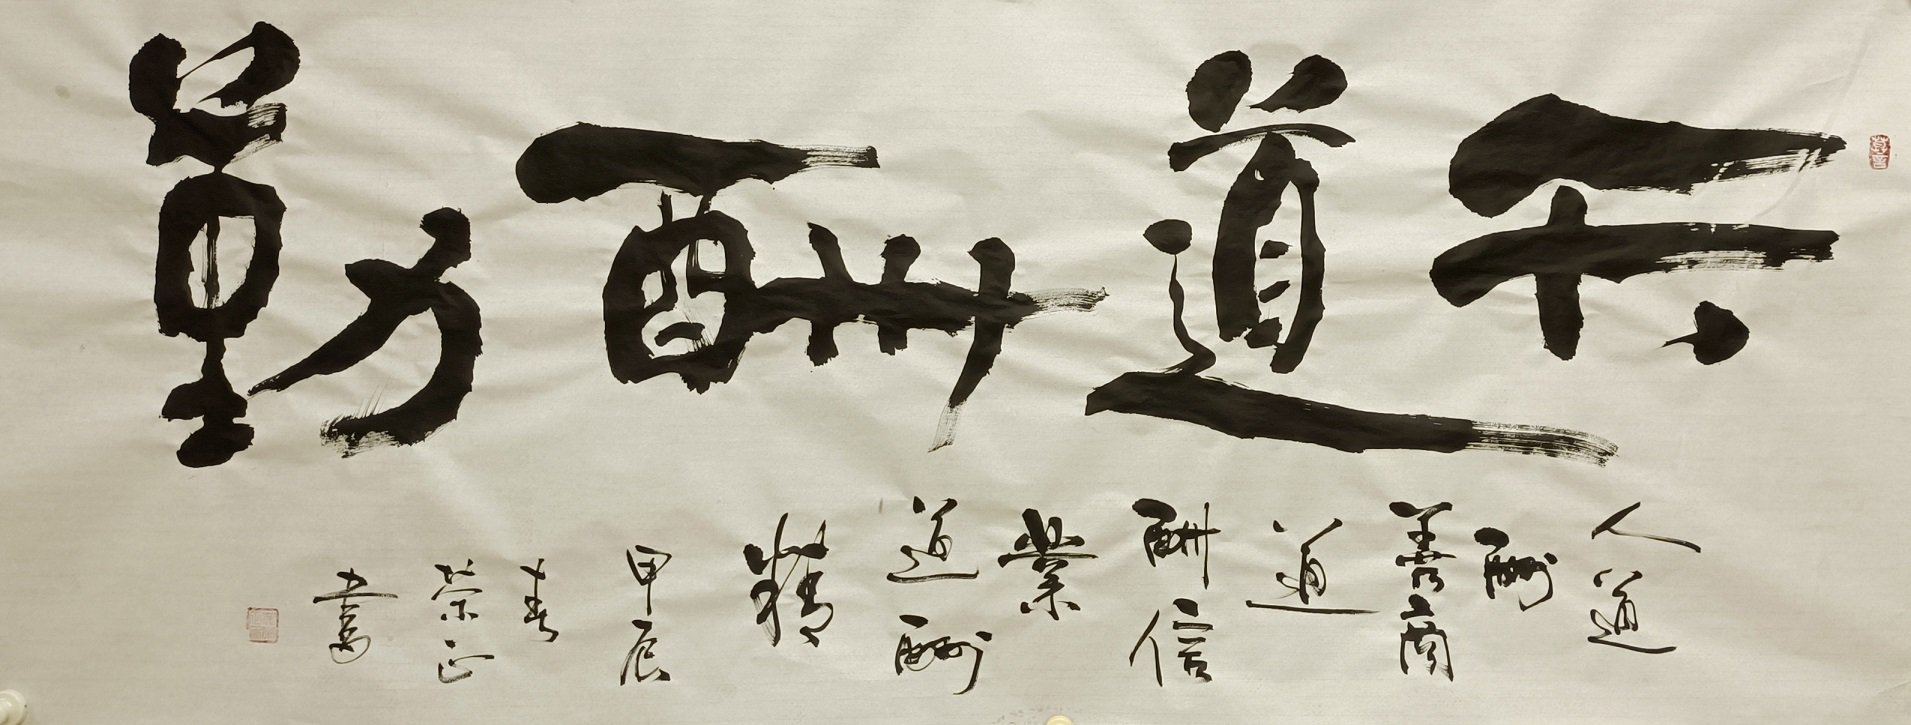 天道酬勤
人道
酬
善商
道
酬信
業
道酬
精
甲辰
春
榮正
書